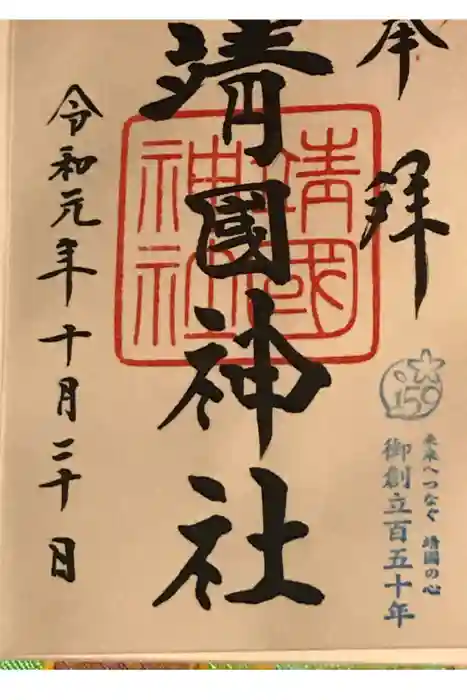 奉拝
靖國神社
靖國神社
令和元年十月二十日
150
未来へつなぐ 靖國の心
御創立百五十年